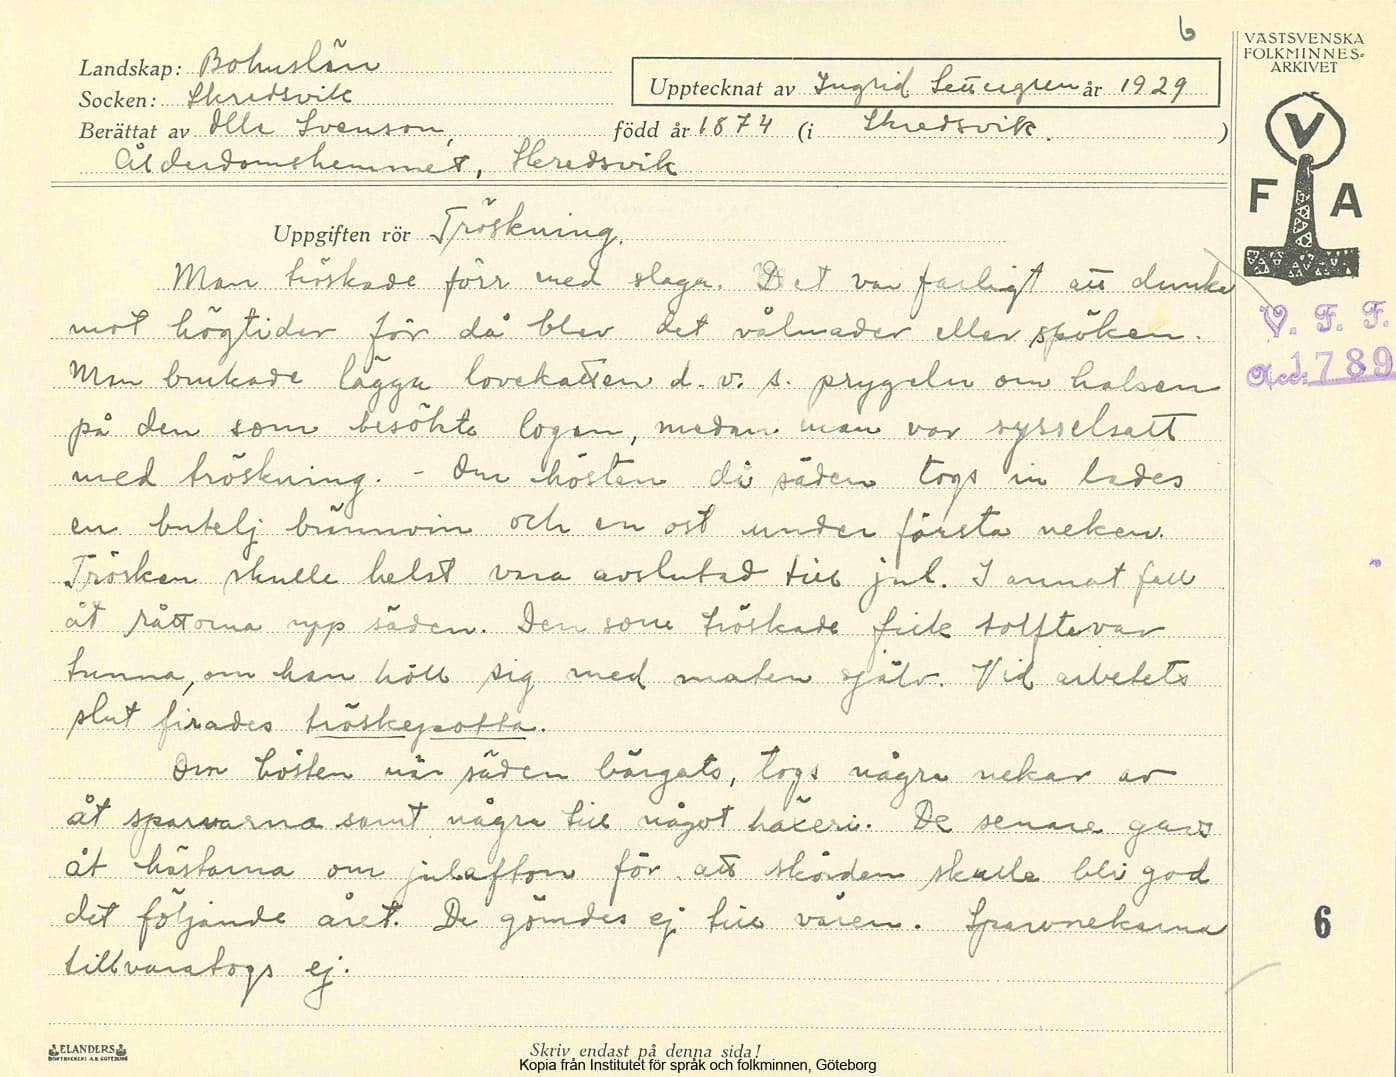 6
VÄSTSVENSKA
FOLKMINNES=
ARKIVET
Landskap: Bohuslän
Socken: Skredsvik
Upptecknat av Ingrid år 1929
Berättat av Olle Svenson, född år 1874 (i Skredsvik. )
Ålderdomshemmet, Skredsvik
V
F A
Uppgiften rör Tröskning.
Man tröskade förr med slaga. Det var farligt att dunka
mot högtider för då blev det vålnader eller spöken.
Man brukade lägga lovekatten d. v. s. prygeln om halsen
på den som besökte logen, medan man var sysselsatt
med tröskning. - Om hösten då säden togs in lades
en butelj brännvin och en ost under första neken.
Trösken skulle helst vara avslutad till jul. I annat fall
åt råttorna upp säden. Den som tröskade fick tolftevar
tunna, om han höll sig med maten själv. Vid arbetets
slut firades tröskepotta.
Om hösten när säden bärgats, togs några nekar av
åt sparvarna samt några till något häxeri. De senare gavs
åt hästarna om julafton för att skörden skulle bli god
det följande året. De gömdes ej till våren. Sparvnekarna
tillvaratogs ej.
V. F. F.
Acc: 1789
6
ELANDERS
BOKTRYCKERI A.B. GÖTEBORG
Skriv endast på denna sida!
Kopia från Institutet för språk och folkminnen, Göteborg